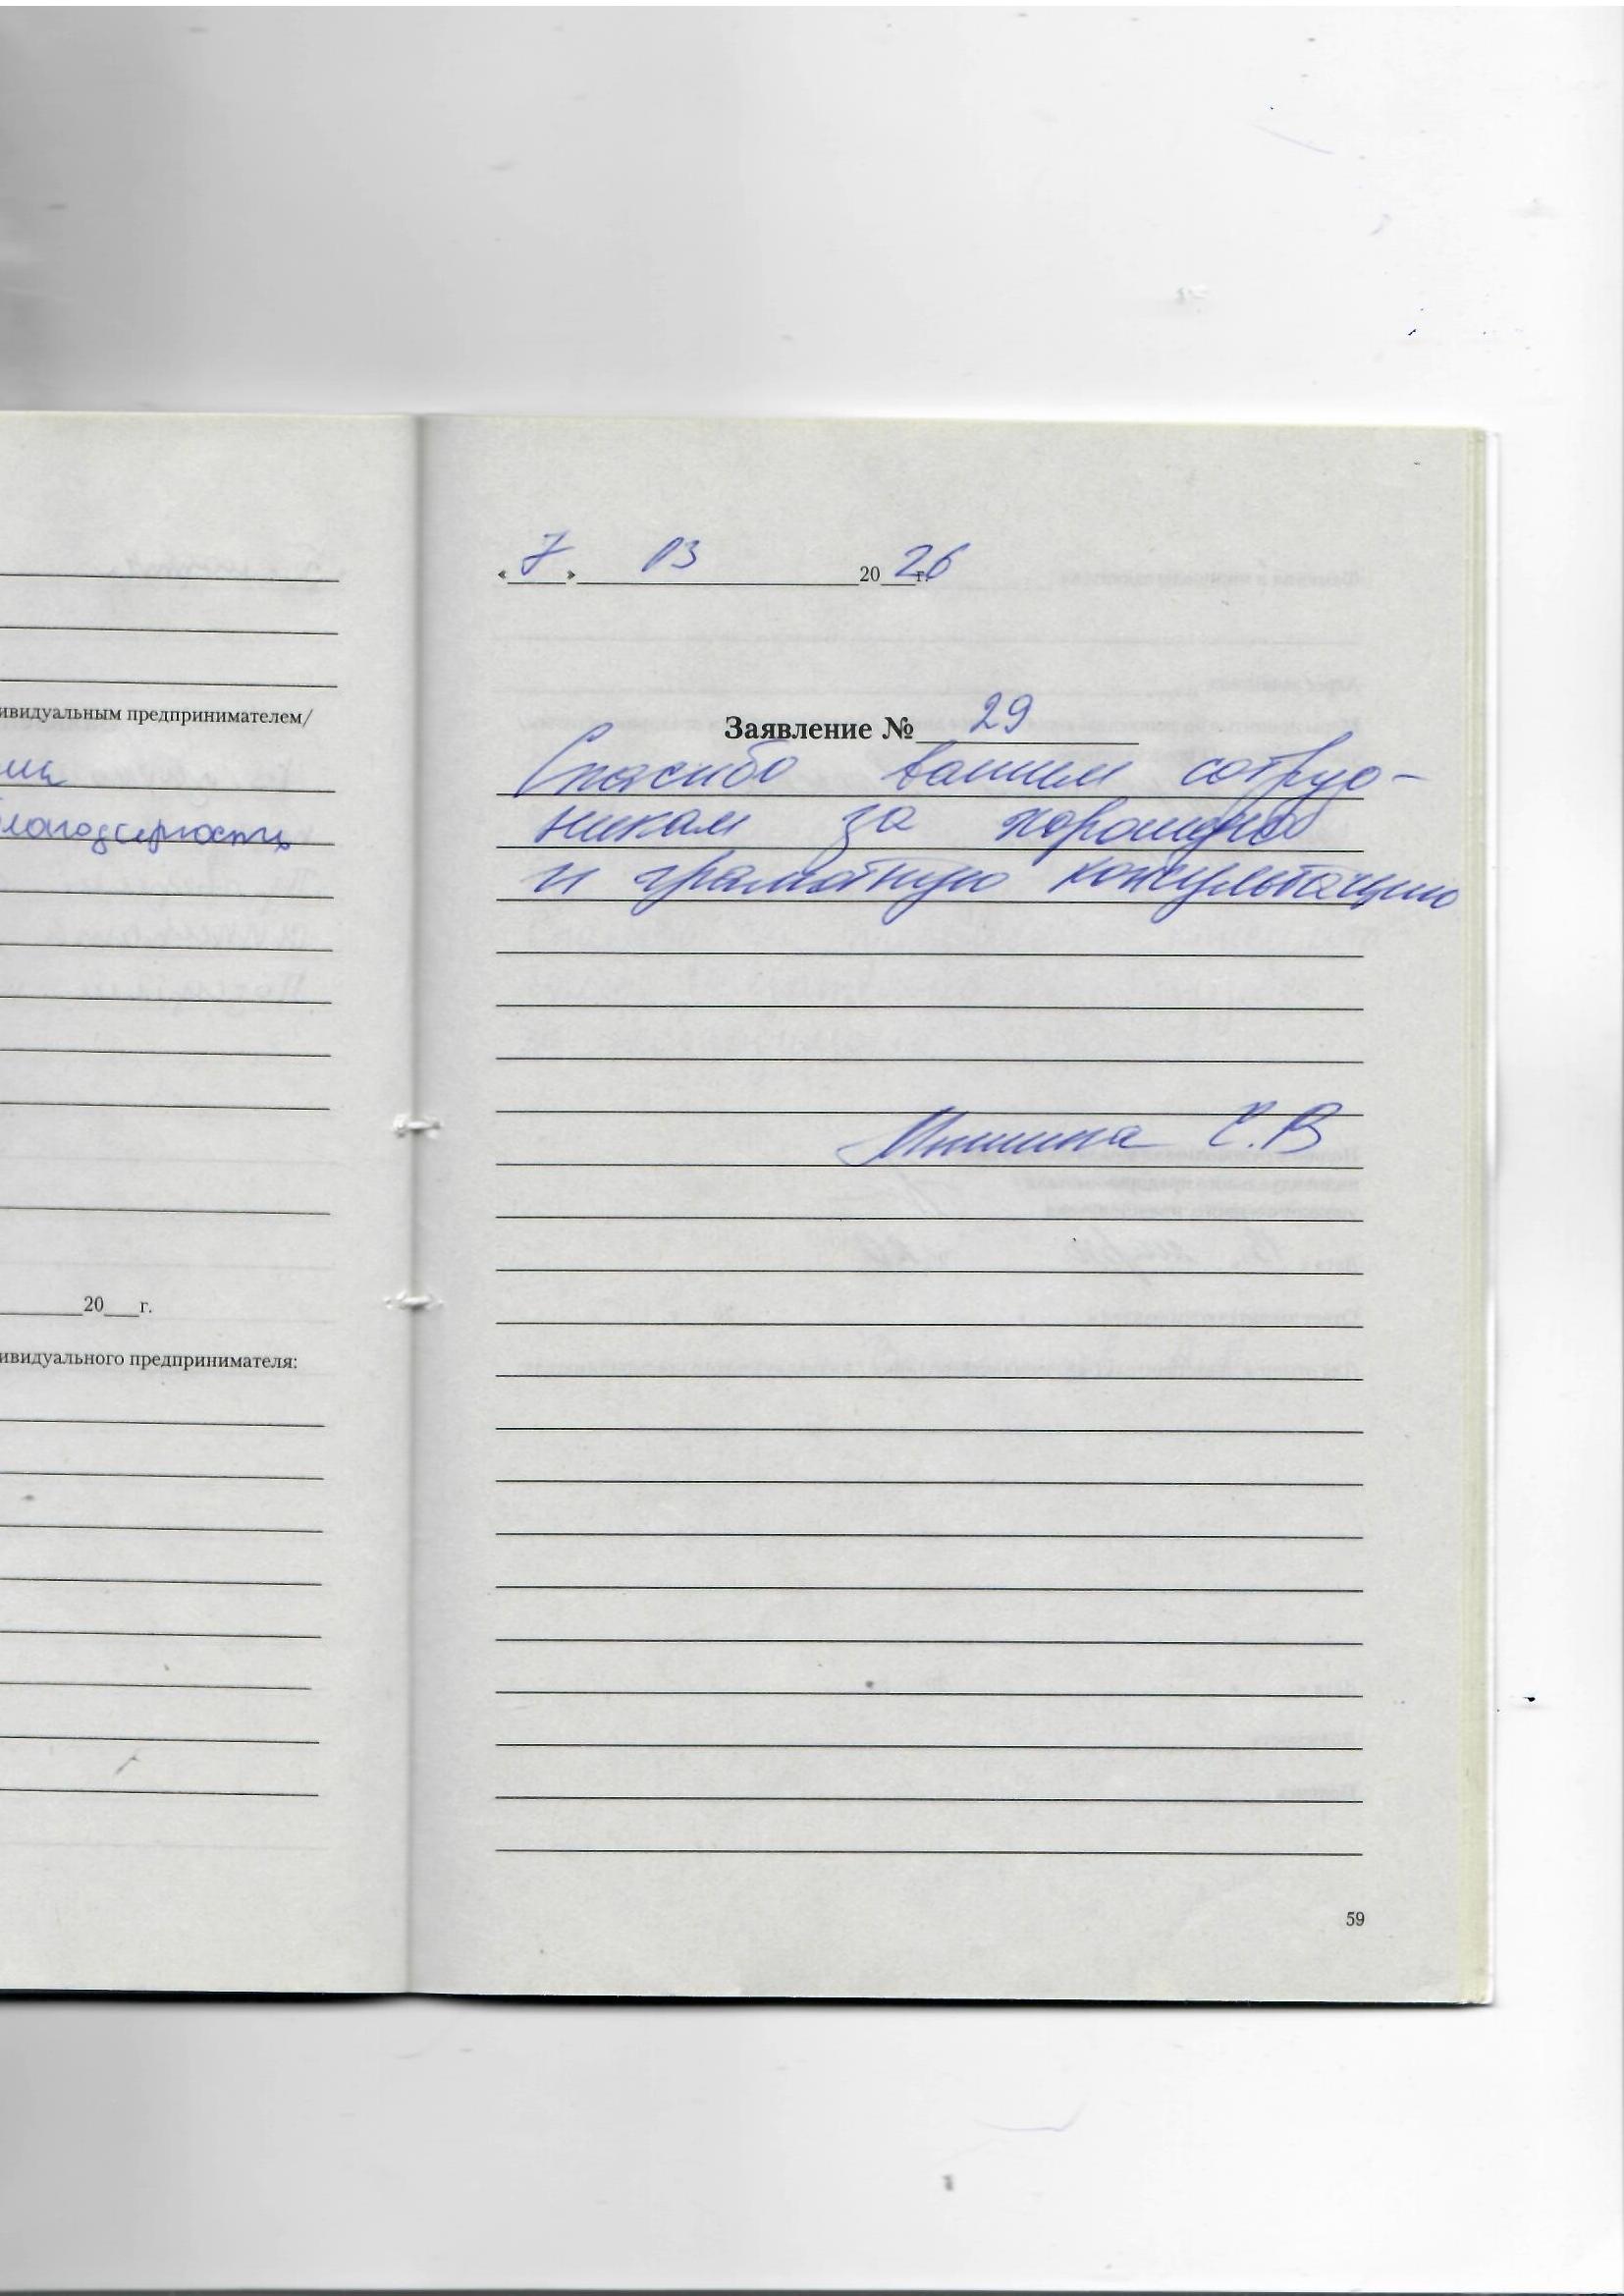 ивидуальным предпринимателем/
благодарность
20 г.
ивидуального предпринимателя:
« 7 » 03 2026 г.
Заявление № 29
Спасибо вашим сотруд-
никам за хорошую
и грамотную консультацию
С.В
59